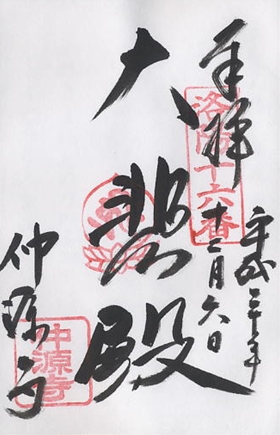 奉拝
洛陽十六番
平成三十年
十二月六日
大悲殿
仲源寺
仲源寺